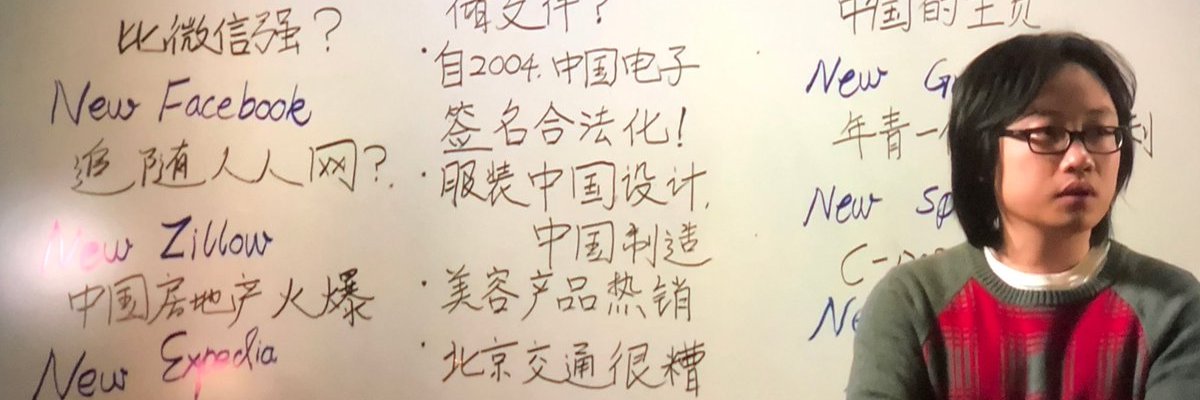 比微信强?
New Facebook
追随人人网?
New Zillow
中国房地产火爆
New Expedia
文件?
·自2004.中国电子
签名合法化!
·服装中国设计,
中国制造
·美容产品热销
·北京交通很糟
中国的主页
New G
年青一
New Sp
C-pop